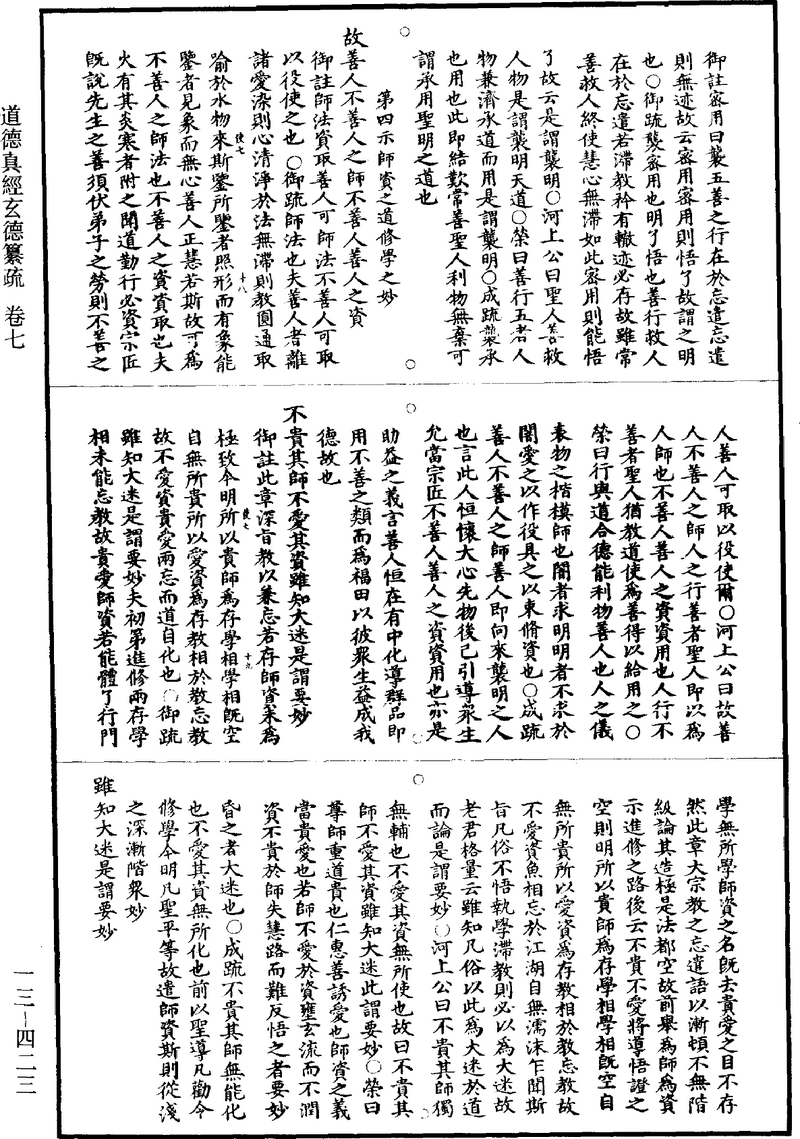 道德真經玄德纂疏　卷七
御註密用曰襲五善之行在於忘遣忘遣
則無迹故云密用密用則悟了故謂之明
也○御疏襲密用也明了悟也善行救人
在於忘遣若滯教矜有轍迹必存故雖常
善救人終使慧心無滯如此密用則能悟
了故云是謂襲明○河上公曰聖人善救
人物是謂襲明天道○榮曰善行五者人
物兼濟承道而用是謂襲明○成疏襲承
也用也此即結歎常善聖人利物無棄可
謂承用聖明之道也
第四示師資之道修學之妙
故善人不善人之師不善人善人之資
御註師法資取善人可師法不善人可取
以役使之也○御疏師法也夫善人者離
諸愛染則心清淨於法無滯則教圓通取
喻於水物來斯鑒所鑒者照形而有象能
鑒者見象而無心善人正慧若斯故可為
不善人之師法也不善人之資資取也夫
火有其炎寒者附之聞道勤行必資宗匠
既說先生之善須伏弟子之勞則不善之
人善人可取以役使爾○河上公曰故善
人不善人之師人之行善者聖人即以為
人師也不善人善人之資資用也人行不
善者聖人猶教道使為善得以給用之○
榮曰行與道合德能利物善人也人之儀
表物之楷模師也闇者求明明者不求於
闇愛之以作役具之以束脩資也○成疏
善人不善人之師善人即向來襲明之人
也言此人恒懷大心先物後己引導眾生
允當宗匠不善人善人之資資用也亦是
助益之義言善人恒在有中化導群品即
用不善之類而為福田以彼眾生益成我
德故也
不貴其師不愛其資雖知大迷是謂要妙
御註此章深旨教以兼忘若存師資未為
極致今明所以貴師為存學相學相既空
自無所貴所以愛資為存教相於教忘教
故不愛資貴愛兩忘而道自化也○御疏
雖知大迷是謂要妙夫初第進修兩存學
相未能忘教故貴愛師資若能體了行門
學無所學師資之名既去貴愛之目不存
然此章大宗教之忘遣語以漸頓不無階
級論其造極是法都空故前舉為師為資
示進修之路後云不貴不愛將導悟證之
空則明所以貴師為存學相學相既空自
無所貴所以愛資為存教相於教忘教故
不愛資魚相忘於江湖自無濡沫乍聞斯
旨凡俗不悟執學滯教則必以為大迷故
老君格量云雖知凡俗以此為大迷於道
而論是謂要妙○河上公曰不貴其師獨
無輔也不愛其資無所使也故曰不貴其
師不愛其資雖知大迷此謂要妙○榮曰
尊師重道貴也仁惠善誘愛也師資之義
當貴愛也若師不愛於資壅玄流而不潤
資不貴於師失慧路而難反悟之者要妙
昏之者大迷也○成疏不貴其師無能化
也不愛其資無所化也前以聖導凡勸令
修學今明凡聖平等故遣師資斯則從淺
之深漸階眾妙
雖知大迷是謂要妙
使七
十八
使七
十九
一三－四二三